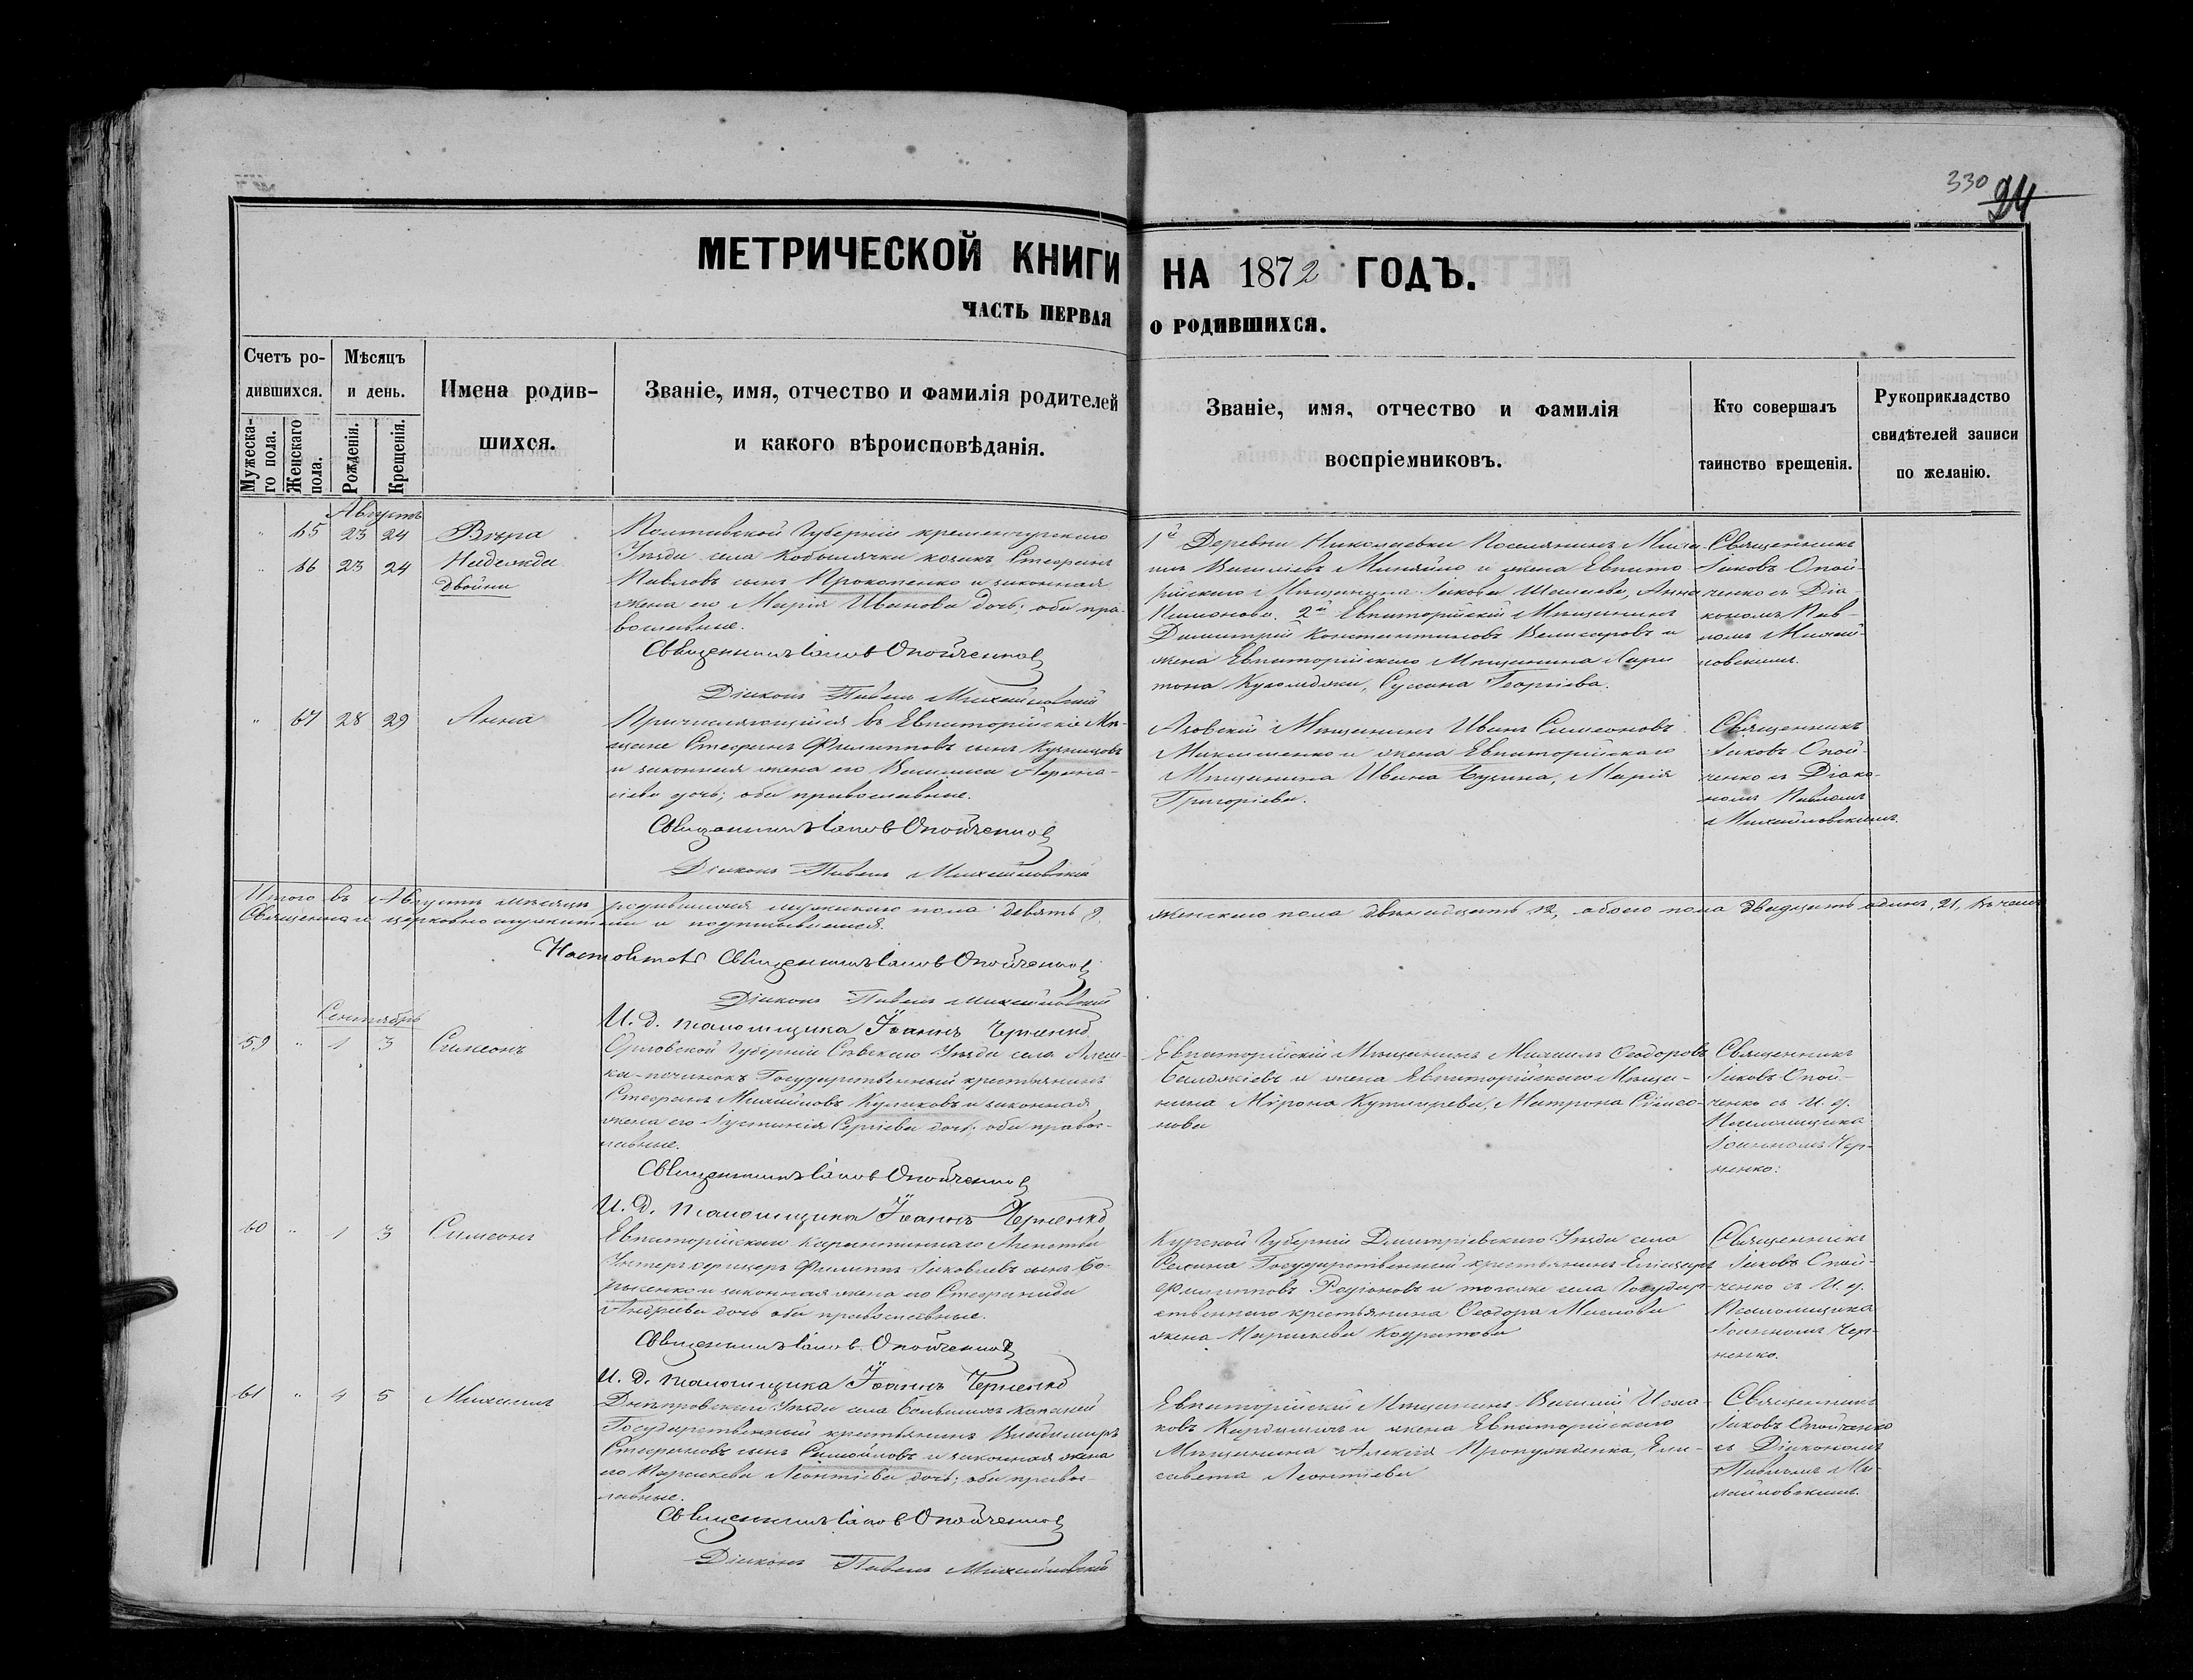 330 24
МЕТРИЧЕСКОЙ КНИГИ НА 1872 ГОДЪ.
ЧАСТЬ ПЕРВАЯ О РОДИВШИХСЯ.
Счетъ ро-
дившихся.
Мужеска-
го пола.
Женскаго
пола.
Мѣсяцъ
и день.
Рожденія.
Крещенія.
Имена родив-
шихся.
Званіе, имя, отчество и фамилія родителей
и какого вѣроисповѣданія.
Званіе, имя, отчество и фамилія
воспріемниковъ.
Кто совершалъ
таинство крещенія.
Рукоприкладство
свидѣтелей записи
по желанію.
Августъ
" 65 23 24 Вѣра
" 66 23 24 Надежда
двойни
Полтавской Губерніи кременчугскаго
Уѣзда села Кобылячки козакъ Стефанъ
Павловъ сынъ Прокопенко и законная
жена его Марія Иванова дочь; оба пра-
вославные.
Священникъ Іаковъ Опойченко
Діаконъ Павелъ Михайловскій
1й Деревни Николаевки Поселянинъ
Васильевъ и жена Евпато-
рійскаго Мѣщанина Іакова Анна
2й Евпаторійскій Мѣщанинъ
Димитрій Константиновъ и
жена Евпаторійскаго Мѣщанина Хари
тона Сусана Георгіева.
Священникъ
Іаковъ Опой-
ченко съ Діа-
кономъ Пав-
ломъ Михай-
ловскимъ.
" 67 28 29 Анна
Причисляющійся въ Евпаторійскіе Мѣ-
щане Стефанъ Филипповъ сынъ Кузнецовъ
и законная жена его Василиса
дочь; оба православные.
Священникъ Іаковъ Опойченко
Діаконъ Павелъ Михайловскій
Азовскій Мѣщанинъ Иванъ Симеоновъ
и жена Евпаторійскаго
Мѣщанина Ивана Марія
Григоріева.
Священникъ
Іаковъ Опой-
ченко съ Діако-
номъ Павломъ
Михайловскимъ.
Итого въ Августѣ мѣсяцѣ родившихся мужескаго пола девять 9, женскаго пола двенадцать 12, обоего пола двадцать одинъ, 21, въ чемъ
Священно и церковно служители и подписываемся.
Священникъ Іаковъ Опойченко
Діаконъ Павелъ Михайловскій
И. д. псаломщика Іоаннъ Черненко
Сентябрь
59 " 1 3 Симеонъ
Орловской Губерніи Сѣвскаго Уѣзда села
Государственный крестьянинъ
Стефанъ Михайловъ Куликовъ и законная
жена его Іустинія Сергіева дочь; оба правос-
лавные.
Священникъ Іаковъ Опойченко
И. д. псаломщика Іоаннъ Черненко
Евпаторійскій Мѣщанинъ Михаилъ Ѳеодоровъ
и жена Евпаторійскаго Мѣща-
нина Мѵрона Матрона Симео-
нова
Священникъ
Іаковъ Опой-
ченко съ И. д.
Псаломщика
Іоанномъ Чер-
ненко.
60 " 1 3 Симеонъ
Евпаторійскаго Карантиннаго Агентства
Унтеръ офицеръ Филиппъ Іаковлевъ сынъ Бо-
рысенко и законная жена его Стефанида
Андреева дочь оба православные.
Священникъ Іаковъ Опойченко
И. д. псаломщика Іоаннъ Черненко
Курской Губерніи Дмитріевскаго Уѣзда села
Государственный крестьянинъ
Филипповъ Родіоновъ и тогоже села Государ-
ственнаго крестьянина Ѳеодора Маслова
жена Параскева Кодратова
Священникъ
Іаковъ Опой-
ченко съ И. д.
Псаломщика
Іоанномъ Чер-
ненко.
61 " 4 5 Михаилъ
Днѣпровскаго Уѣзда села Большихъ Копаней
Государственный крестьянинъ Владимиръ
Стефановъ сынъ Самойловъ и законная жена
его Параскева Леонтіева дочь; оба правос-
лавные.
Священникъ Іаковъ Опойченко
Діаконъ Павелъ Михайловскій
Евпаторійскій Мѣщанинъ Василій Исаа-
ковъ и жена Евпаторійскаго
Мѣщанина Алексія Ели-
савета Леонтіева
Священникъ
Іаковъ Опойченко
съ Діакономъ
Павломъ Ми-
хайловскимъ.